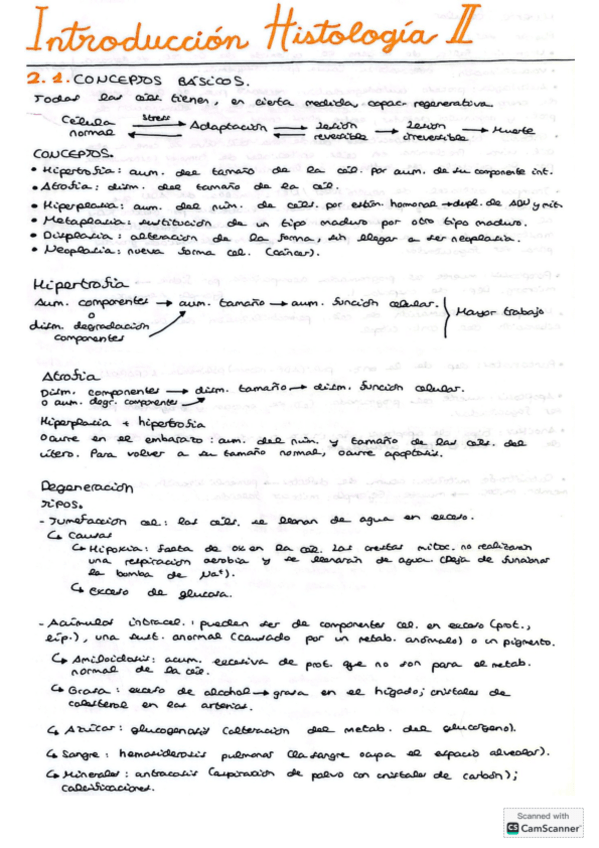 Introducción Histología II
2.1. CONCEPTOS BÁSICOS.
Todas las céls. tienen, en cierta medida, capac. regenerativa.
Célula normal stress Adaptación Lesión reversible Lesión irreversible Muerte
CONCEPTOS.
• Hipertrofia: aum. del tamaño de la cél. por aum. de su componente int.
• Atrofia: dism. del tamaño de la cél.
• Hiperplasia: aum. del núm. de céls. por estím. hormonal → dupl. de ADN y mit.
• Metaplasia: sustitución de un tipo maduro por otro tipo maduro.
• Displasia: alteración de la forma, sin llegar a ser neoplasia.
• Neoplasia: nueva forma cel. (cáncer).
Hipertrofia
Aum. componentes → aum. tamaño → aum. función celular.
o
Mayor trabajo
dism. degradación
componentes
Atrofia
Dism. componentes → dism. tamaño → dism. función celular.
o aum. degr. componentes
Hiperplasia + hipertrofia
Ocurre en el embarazo: aum. del núm. y tamaño de las céls. del
útero. Para volver a su tamaño normal, ocurre apoptosis.
Degeneración
TIPOS.
- Tumefacción cel.: las céls. se llenan de agua en exceso.
↳ Causas
↳ Hipoxia: falta de ox en la cél. Las crestas mitoc. no realizarán
una respiración aerobia y se llenarán de agua. (Deja de funcionar
la bomba de Na⁺).
↳ Exceso de glucosa.
- Acúmulos intracel.: pueden ser de componentes cel. en exceso (prot.,
líp.), una sust. anormal (causado por un metab. anómalo) o un pigmento.
↳ Amiloidosis: acum. excesiva de prot. que no son para el metab.
normal de la cél.
↳ Grasa: exceso de alcohol → grasa en el hígado; cristales de
colesterol en las arterias.
↳ Azúcar: glucogenosis (alteración del metab. del glucógeno).
↳ Sangre: hemosiderosis pulmonar (la sangre ocupa el espacio alveolar).
↳ Minerales: antracosis (aspiración de polvo con cristales de carbón);
calcificaciones.
Scanned with
CS CamScanner